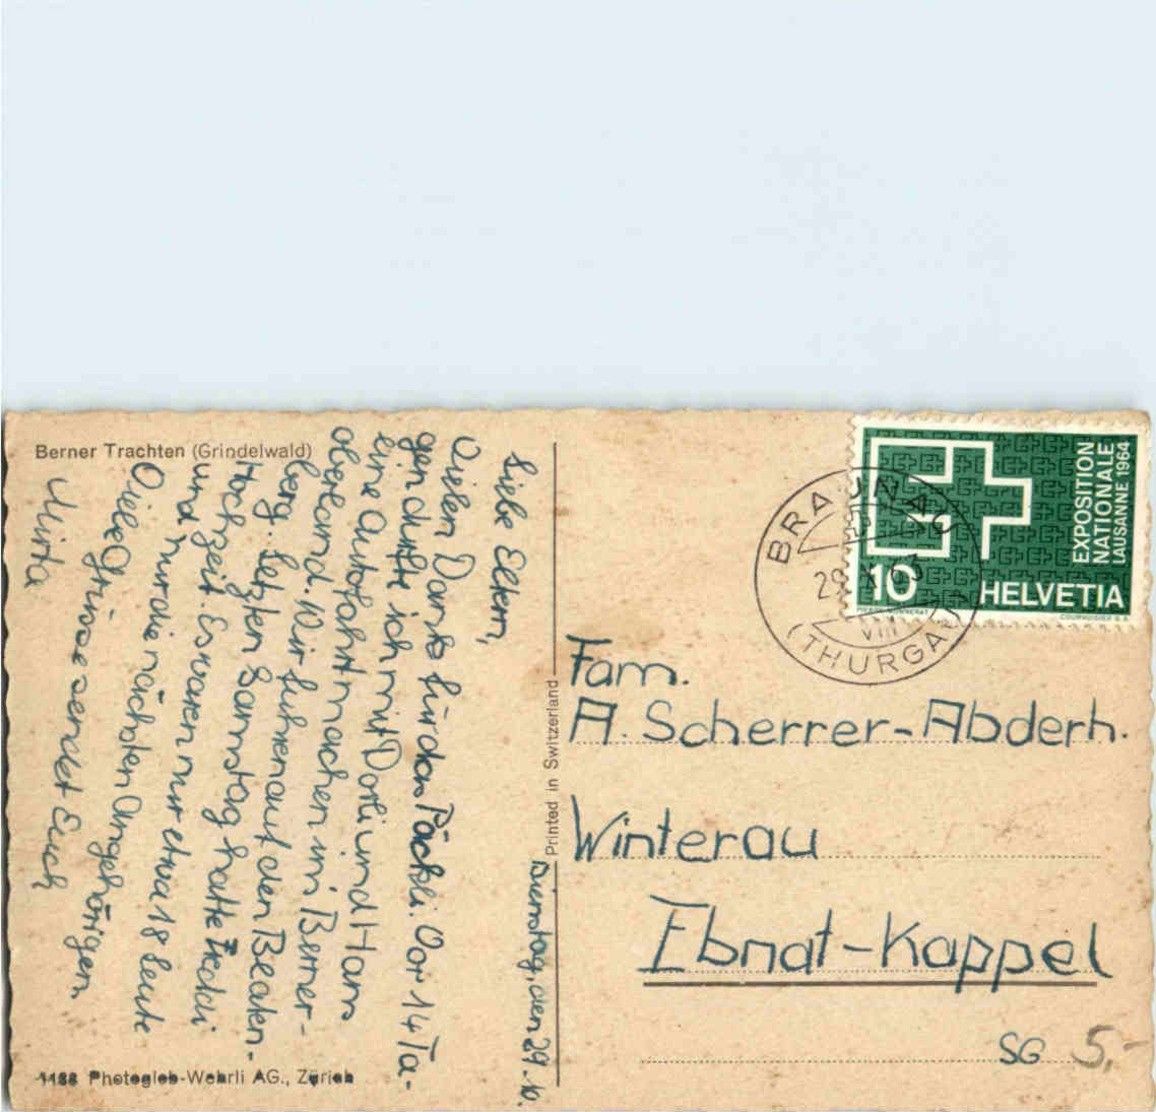 Berner Trachten (Grindelwald)
Dienstag, den 29.10.
Liebe Eltern,
Vielen Dank für das Päckli. Vor 14 Ta-
gen durfte ich mit Dorli und Hans
eine Autofahrt machen im Berner-
oberland. Wir fuhren auf den Beaten-
berg. Letzten Samstag hatte
Hochzeit. Es waren nur etwa 18 Leute
und nur die nächsten Angehörigen.
Viele Grüsse sendet Euch
Mirta
1188 Photoglob-Wehrli AG., Zürich
Printed in Switzerland
EXPOSITION
NATIONALE
LAUSANNE 1964
10
HELVETIA
COURVOISIER S.A.
BRAUNAU
29. X. 63
VIII
(THURGAU)
Fam.
A. Scherrer-Abderh.
Winterau
Ebnat-Kappel
SG
5.-